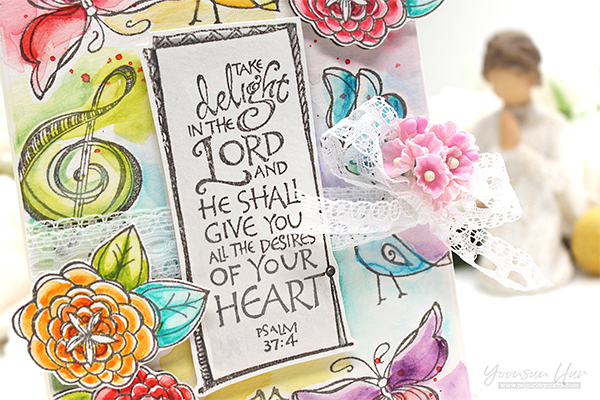 TAKE
delight
IN THE
LORD
AND
HE SHALL
GIVE YOU
ALL THE DESIRES
OF YOUR
HEART
PSALM
37:4
Yoonsun Hur